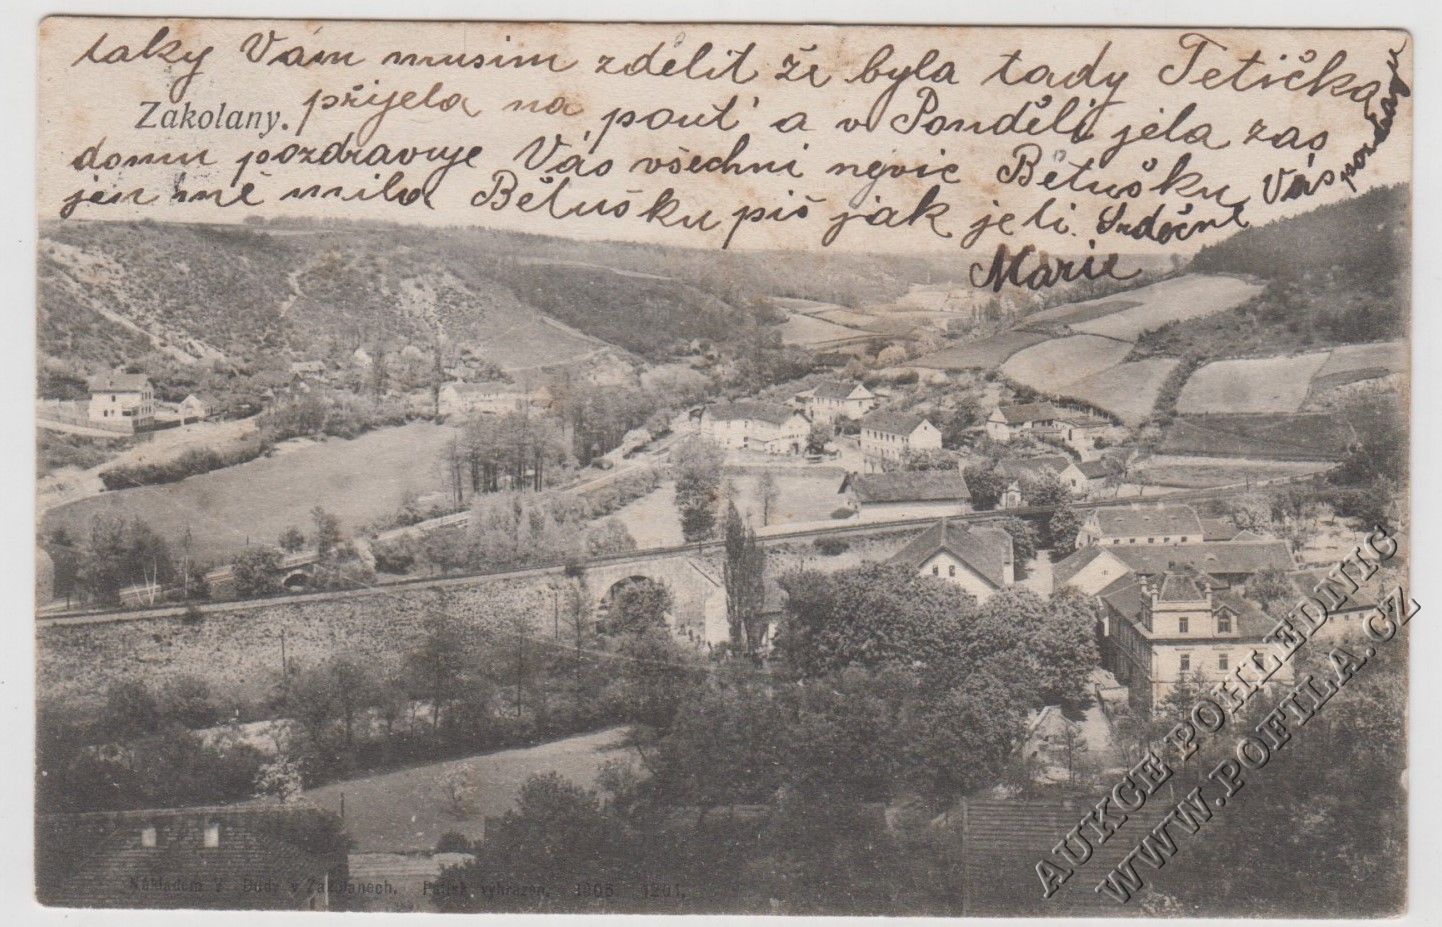 taky Vám musim zdělit že byla tady Tetička
Zakolany.
přijela na pout' a v Ponděli jela zas
domu pozdravuje Vás všechni nejvic Bětušku
jen mě milá Bětušku piš jak jeti. Srdečně Vás pozdravuje
Marie
Nákladem F. Dudy v Zakolanech. Potisk vyhrazen. 1905 1201.
AUKCE POHLEDNIC
WWW.POFILA.CZ